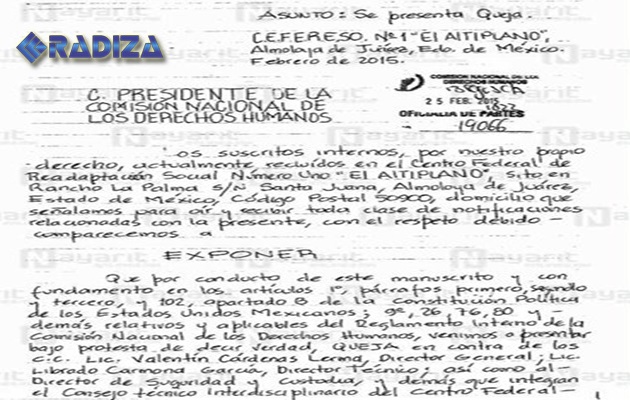 ASUNTO: Se presenta Queja.
RADIZA
C.E.F.E.R.E.S.O. Nº 1 "El AlTIPLANO",
Almoloya de Juárez, Edo. de México.
Febrero de 2015.
COMISION NACIONAL DE LOS
DERECHOS HUMANOS
C. PRESIDENTE DE LA
COMISIÓN NACIONAL DE
LOS DERECHOS HUMANOS
25 FEB. 2015
OFICIALIA DE PARTES
19066
Los suscritos internos, por nuestro propio
derecho, actualmente recluídos en el Centro Federal de
Readaptación Social Número Uno "El AlTIPLANO", sito en
Rancho La Palma s/N Santa Juana, Almoloya de Juárez,
Estado de México, Código Postal 50900, domicilio que
señalamos para oír y recibir toda clase de notificaciones
relacionadas con la presente, con el respeto debido —
comparecemos a
EXPONER
Que por conducto de este manuscrito y con
fundamento en los artículos 1º, párrafos primero, segundo
y tercero, y 102, apartado B de la Constitución Política
de los Estados Unidos Mexicanos; 9º, 26, 76, 80 y —
demás relativos y aplicables del Reglamento Interno de la
Comisión Nacional de los Derechos Humanos, venimos a presentar
bajo protesta de decir verdad, QUEJA en contra de los
C.C. Lic. Valentín Cárdenas Lerma, Director General; Lic.
Librado Carmona García, Director Técnico; así como al —
Director de Seguridad y Custodia, y demás que integran
el Consejo técnico Interdisciplinario del Centro Federal —
1
Nayarit